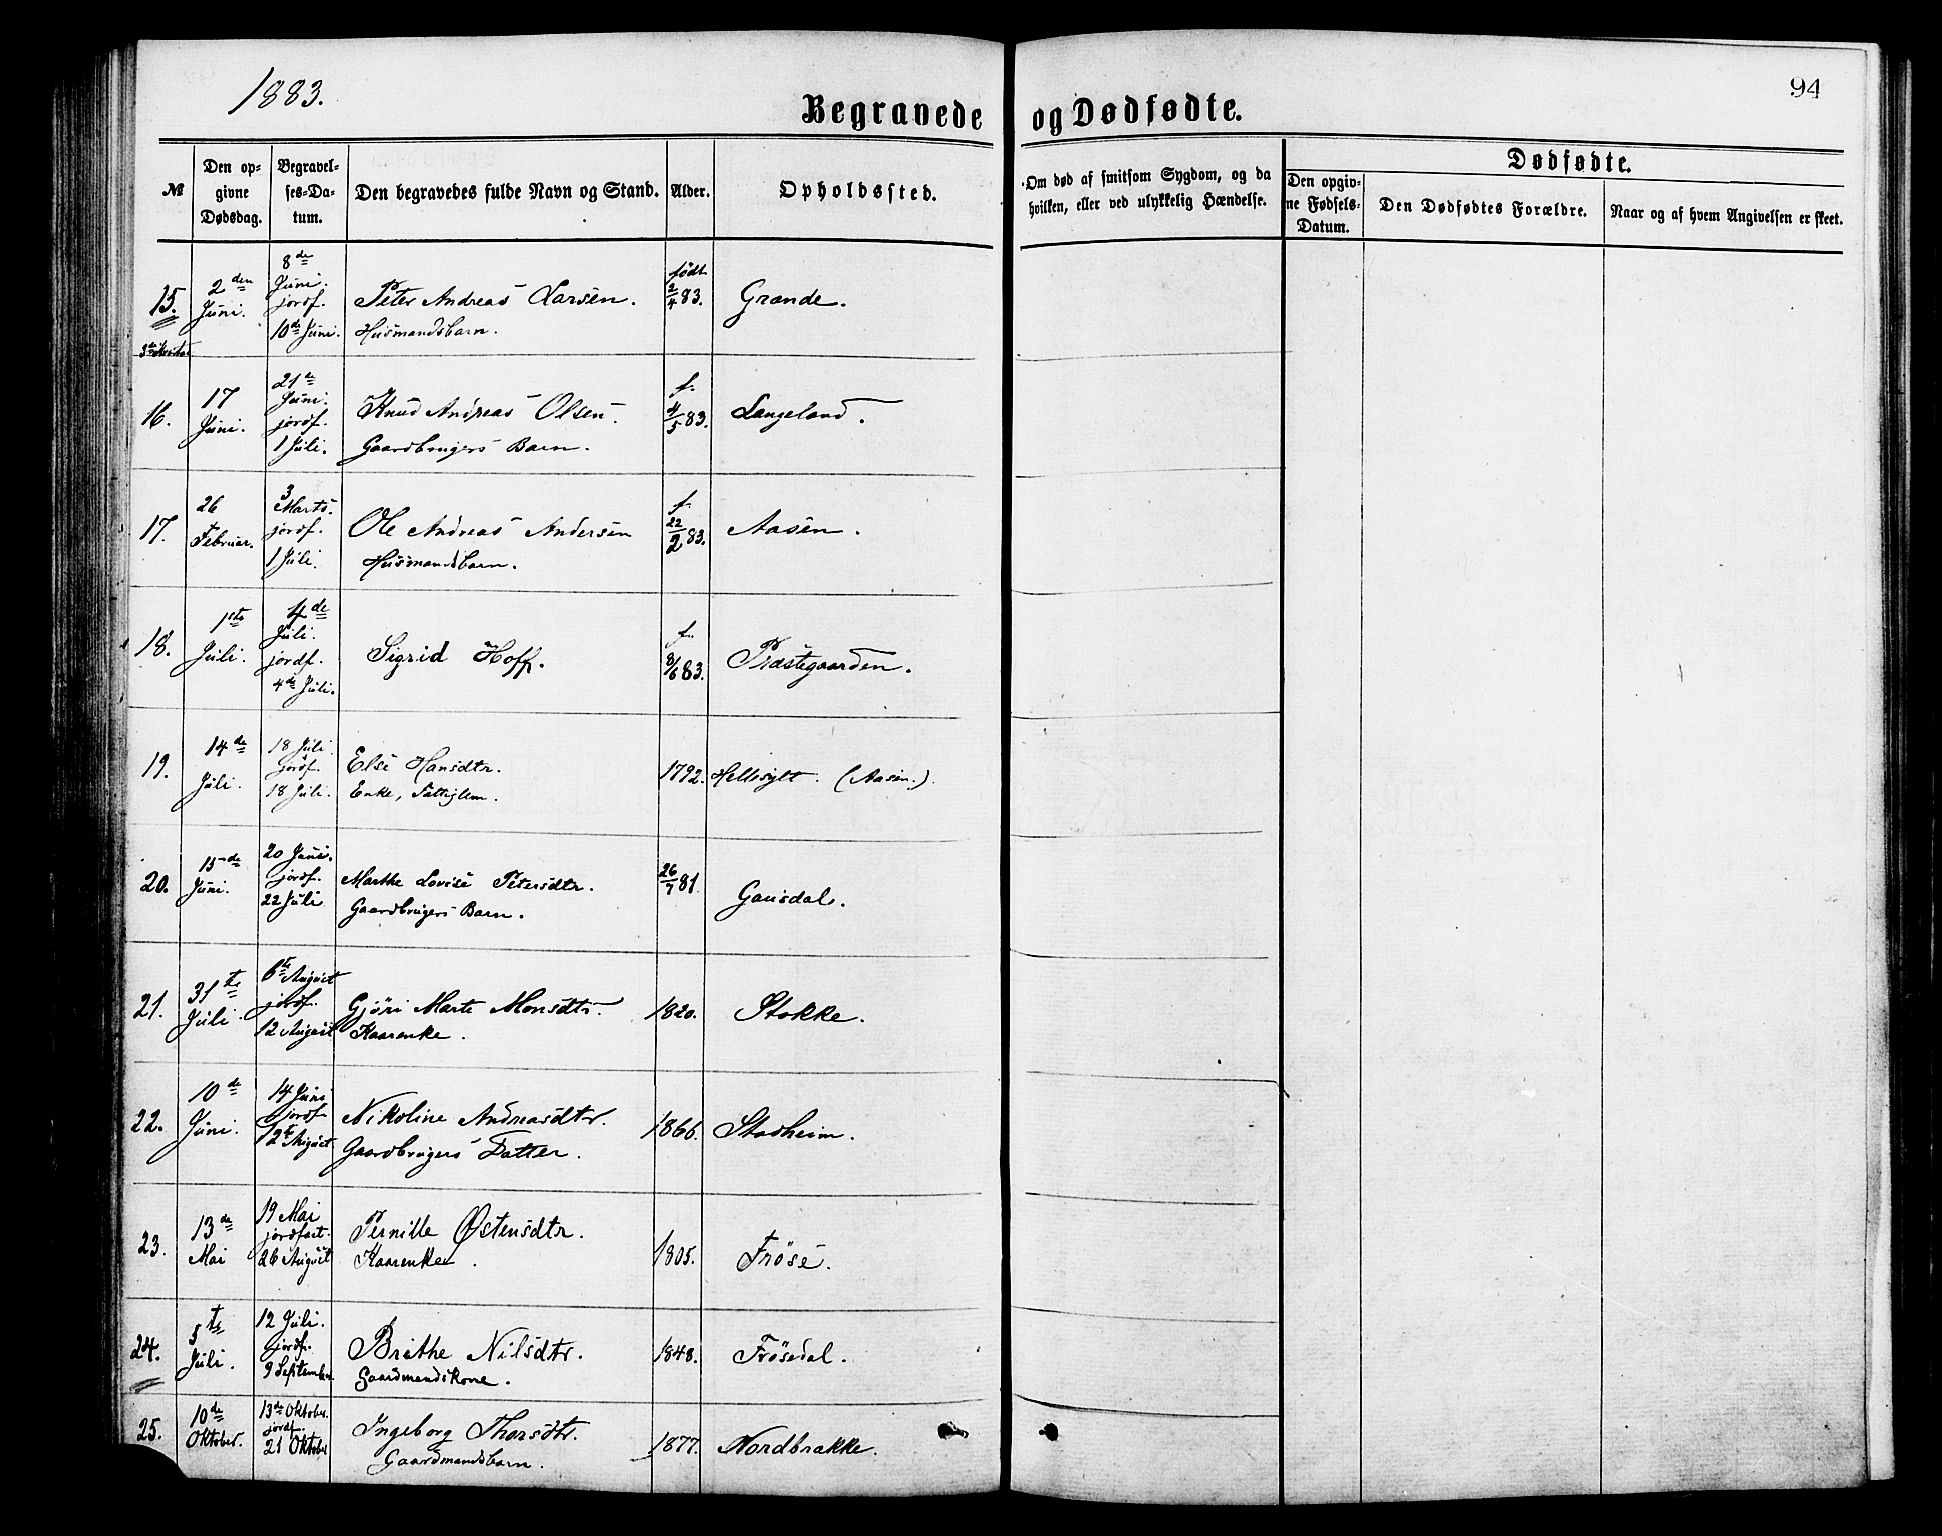 1883.
94
Begravede og Dødfødte.
№
Den op-
givne
Dødsdag.
Begravel-
ses-Da-
tum.
Den begravedes fulde Navn og Stand.
Alder.
Opholdssted.
Om død af smitsom Sygdom, og da
hvilken, eller ved ulykkelig Hændelse.
Dødfødte.
Den opgiv-
ne Fødsels-
Datum.
Den Dødfødtes Forældre.
Naar og af hvem Angivelsen er skeet.
15.
2den
Juni.
8de
Juni.
jordf.
10de Juni.
Peter Andreas Larsen.
Husmandsbarn.
født
2/4 83.
Grande.
16.
17
Juni.
21de
Juni.
jordf.
1 Juli.
Knud Andreas Olsen.
Gaardbrugers Barn.
f.
4/5 83.
Langeland.
17.
26
Februar.
3
Marts.
jordf.
1 Juli.
Ole Andreas Andersen
Husmandsbarn.
f.
22/2 83.
Aasen.
18.
1ste
Juli.
4de
Juli.
jordf.
4de Juli.
Sigrid Hoff.
f.
8/6 83.
Præstegaarden.
19.
14de
Juli.
18 Juli
jordf.
18 Juli.
Else Hansdtr.
Enke, Fattiglem.
1792.
Hellesylt. (Aasen.).
20.
15de
Juni.
20 Juni.
jordf.
22 Juli
Marthe Lovise Petersdtr.
Gaardbrugers Barn.
26/7 81.
Gausdal.
21.
31te
Juli.
6te August
jordf.
12 August
Gjøri Marte Monsdtr.
Kaarenke.
1820.
Stokke.
22.
10de
Juni.
14 Juni
jordf
12te August
Nikoline Andreasdtr.
Gaardbrugers Datter.
1866.
Stadheim.
23.
13de
Mai
19 Mai
jordfæst.
26 August
Pernille Østensdtr.
Kaarenke.
1805.
Frøse.
24.
5te
Juli.
12 Juli.
jordf.
9 September
Brithe Nilsdtr.
Gaardmandskone.
1848.
Frøsedal.
25.
10de
Oktober.
13de Oktober.
jordf.
21 Oktober
Ingeborg Thorsdtr.
Gaardmandsbarn.
1877.
Nordbrække.